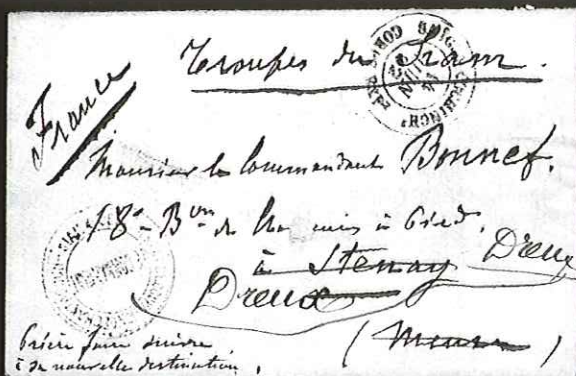 Troupes du Siam.
France
Monsieur le Commandant Bonnef.
18e Bon de Chasseurs à Pied.
à Stenay Dreux
Dreux
(Meuse)
Prière faire suivre
à sa nouvelle destination.